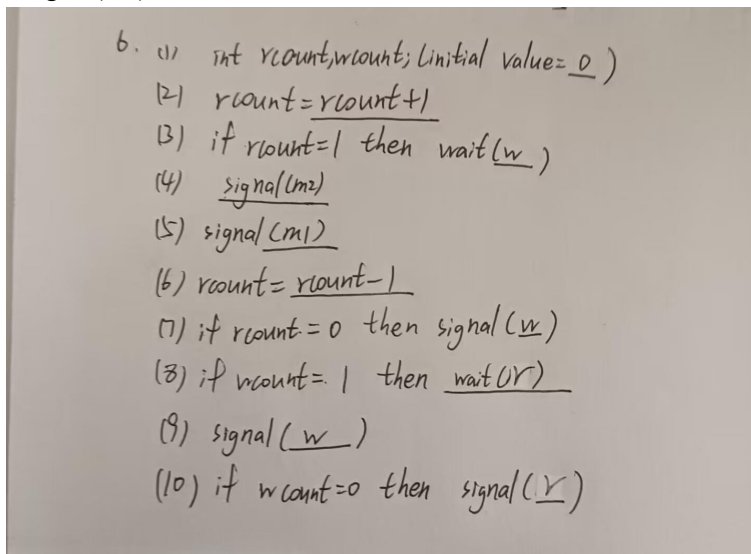 6. (1) int rcount,wcount; (initial value=0)
(2) rcount=rcount+1
(3) if rcount=1 then wait(w)
(4) signal(m2)
(5) signal(m1)
(6) rcount=rcount-1
(7) if rcount=0 then signal(w)
(8) if wcount=1 then wait(r)
(9) signal(w)
(10) if wcount=0 then signal(r)